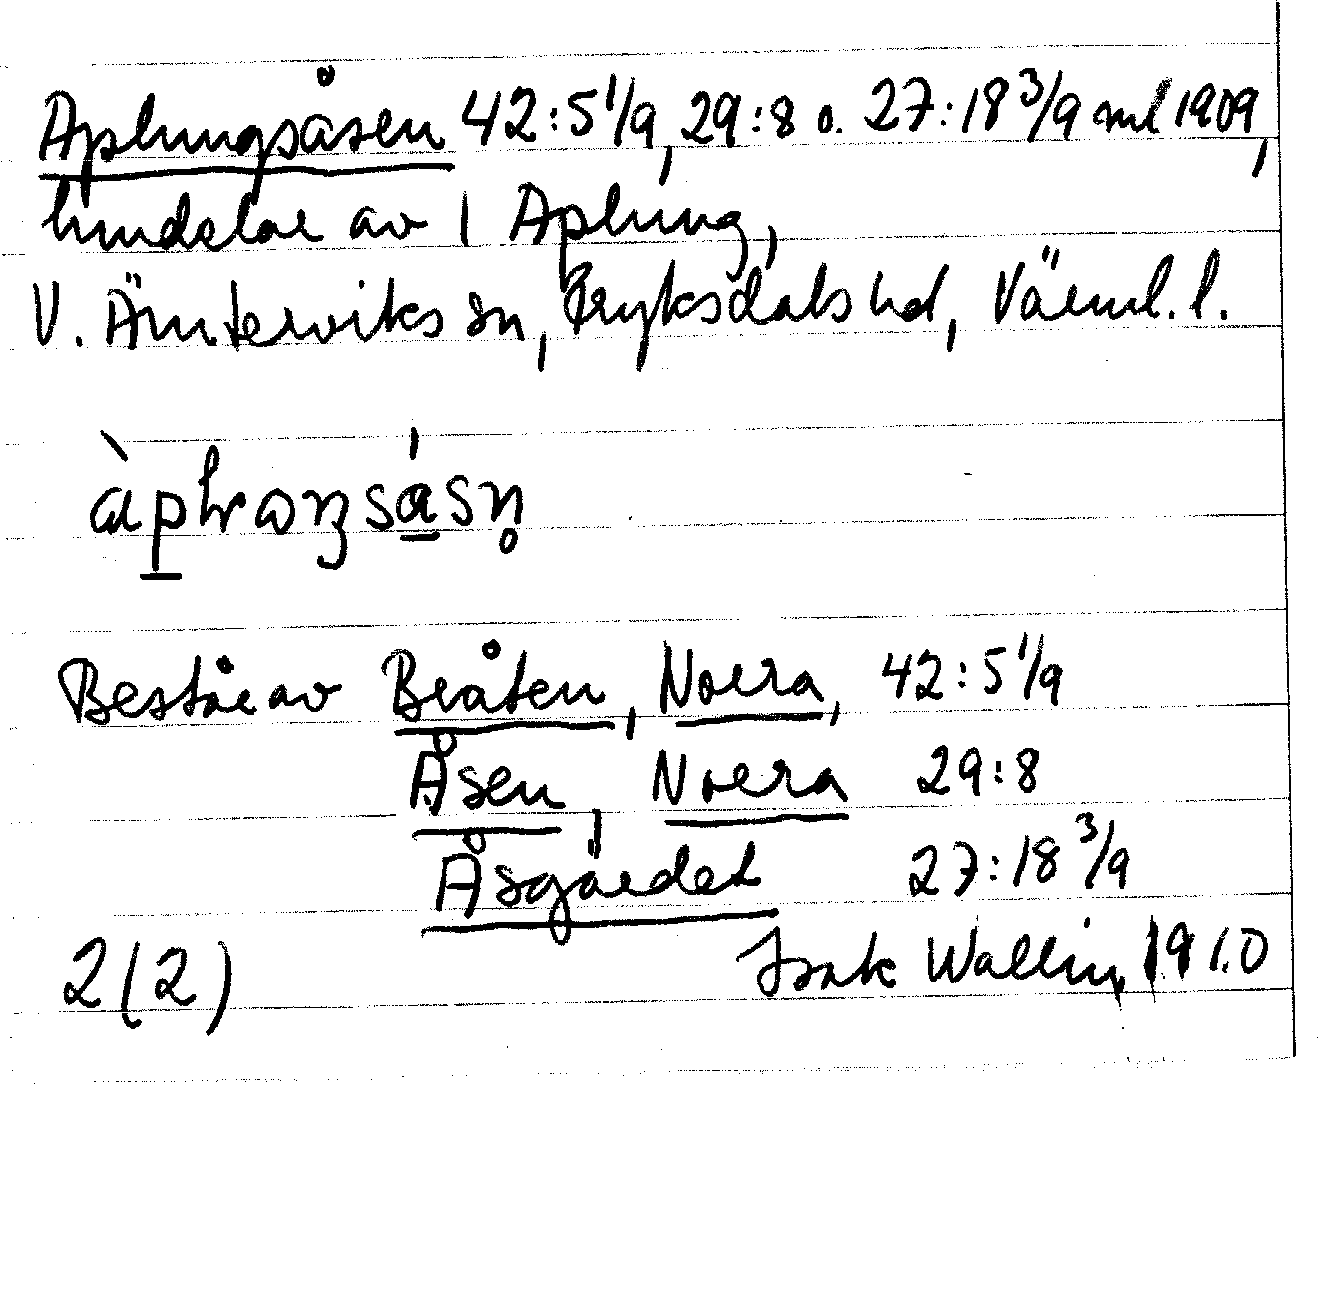 Aplungsåsen 42:5 1/9, 29:8 o. 27:18 3/9 ml 1909,
hmdelar av 1 Aplung,
V. Ämterviks sn, Fryksdals hd, Värml. l.
Består av Bråten, Norra, 42:5 1/9
Åsen, Norra 29:8
Åsgärdet 27:18 3/9
2(2) Isak Wallin 1910